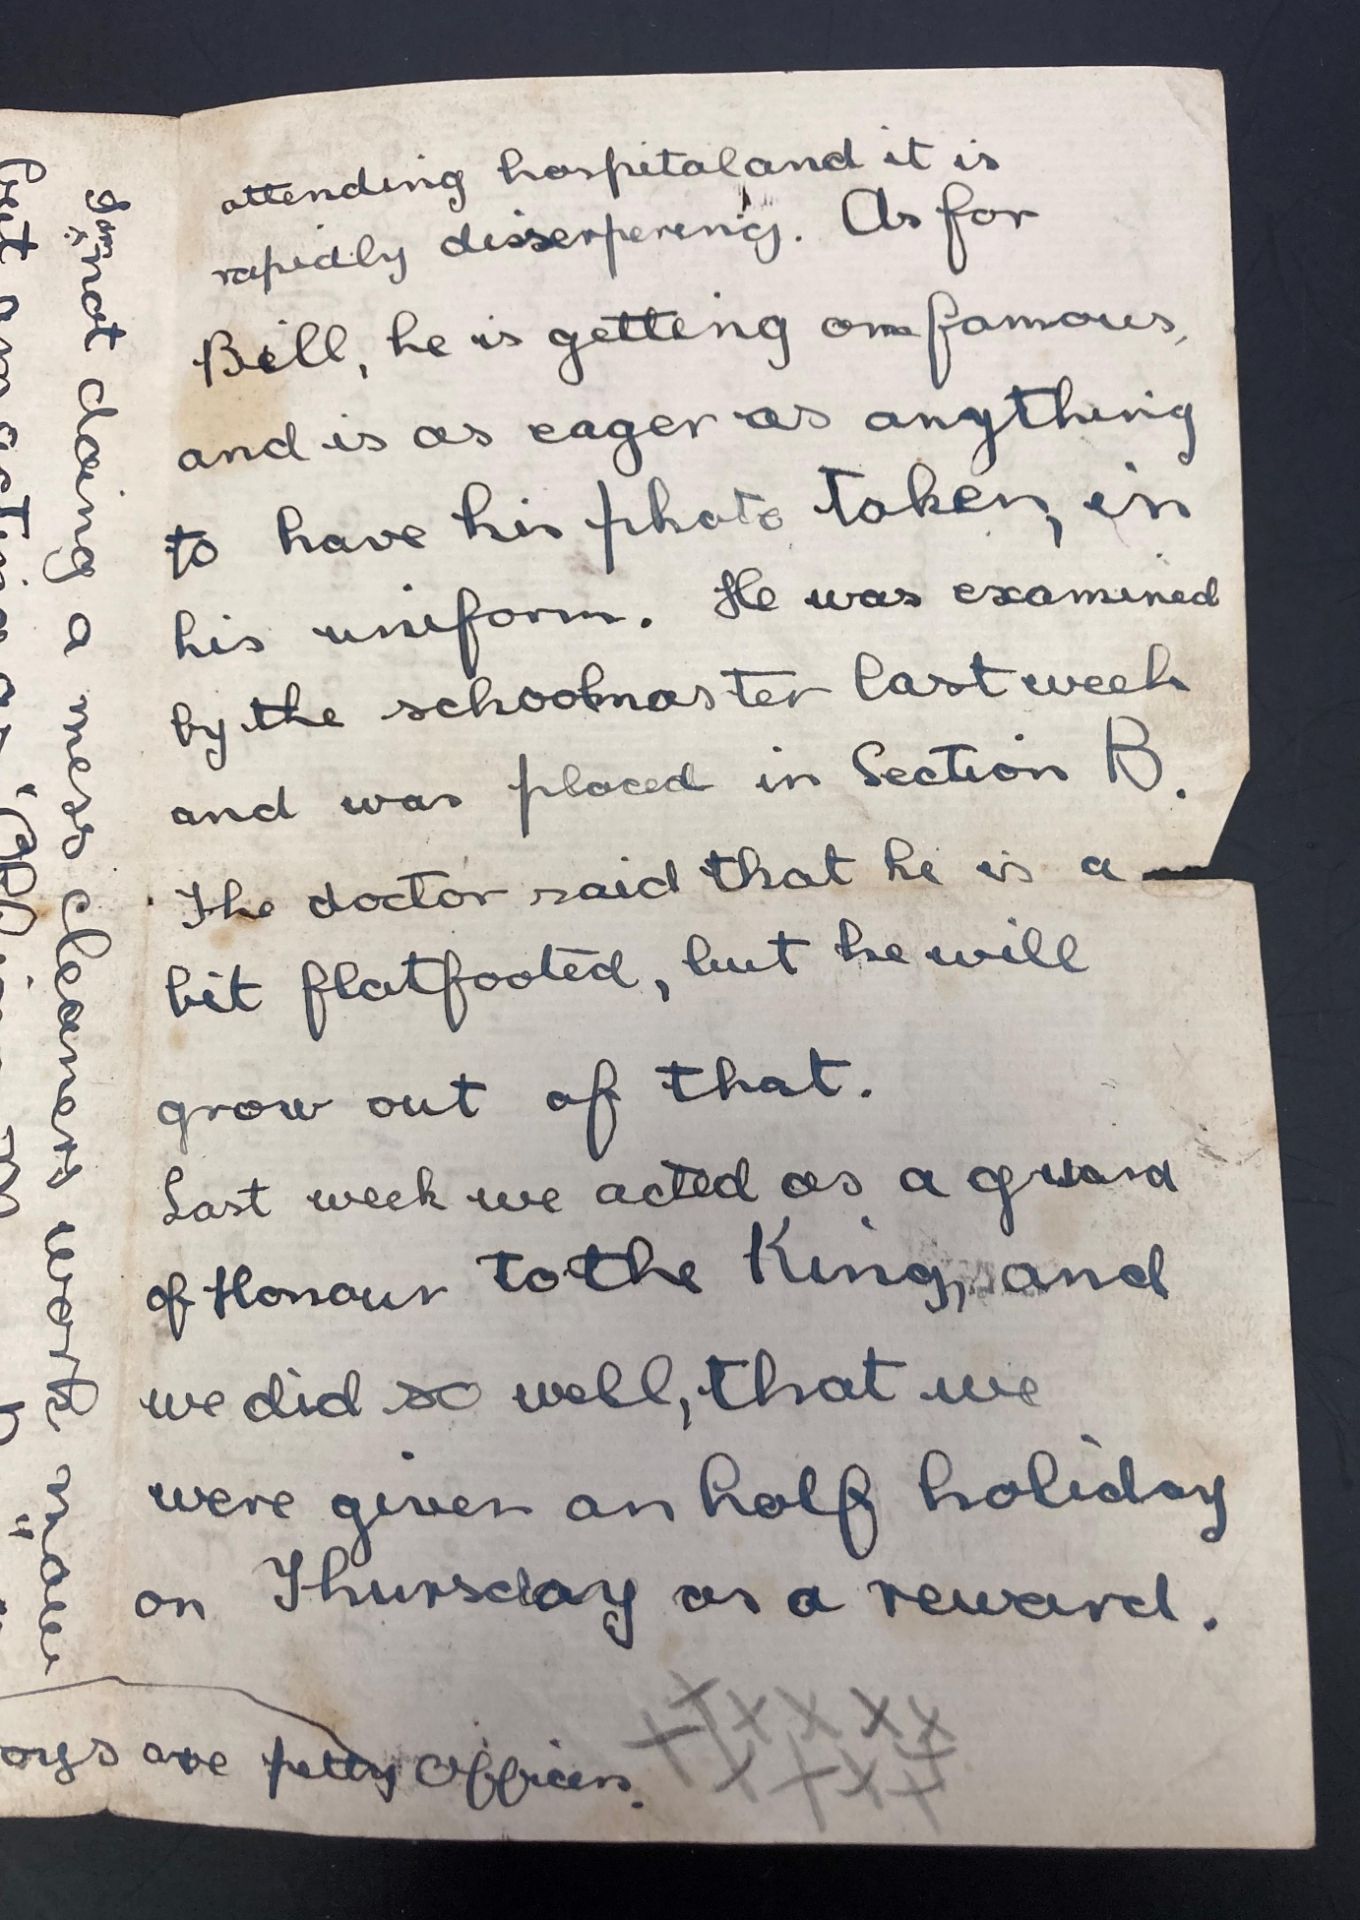 attending hospital and it is
rapidly disserpering. As for
Bill, he is getting on famous,
and is as eager as anything
to have his photo taken, in
his uniform. He was examined
by the schoolmaster last week
and was placed in Section B.
The doctor said that he is a
bit flatfooted, but he will
grow out of that.
Last week we acted as a guard
of Honour to the King, and
we did so well, that we
were given an half holiday
on Thursday as a reward.
x x x x x x
x x x x x
oys are petty Officers.
I am not doing a mess cleaners work now
but am acting as